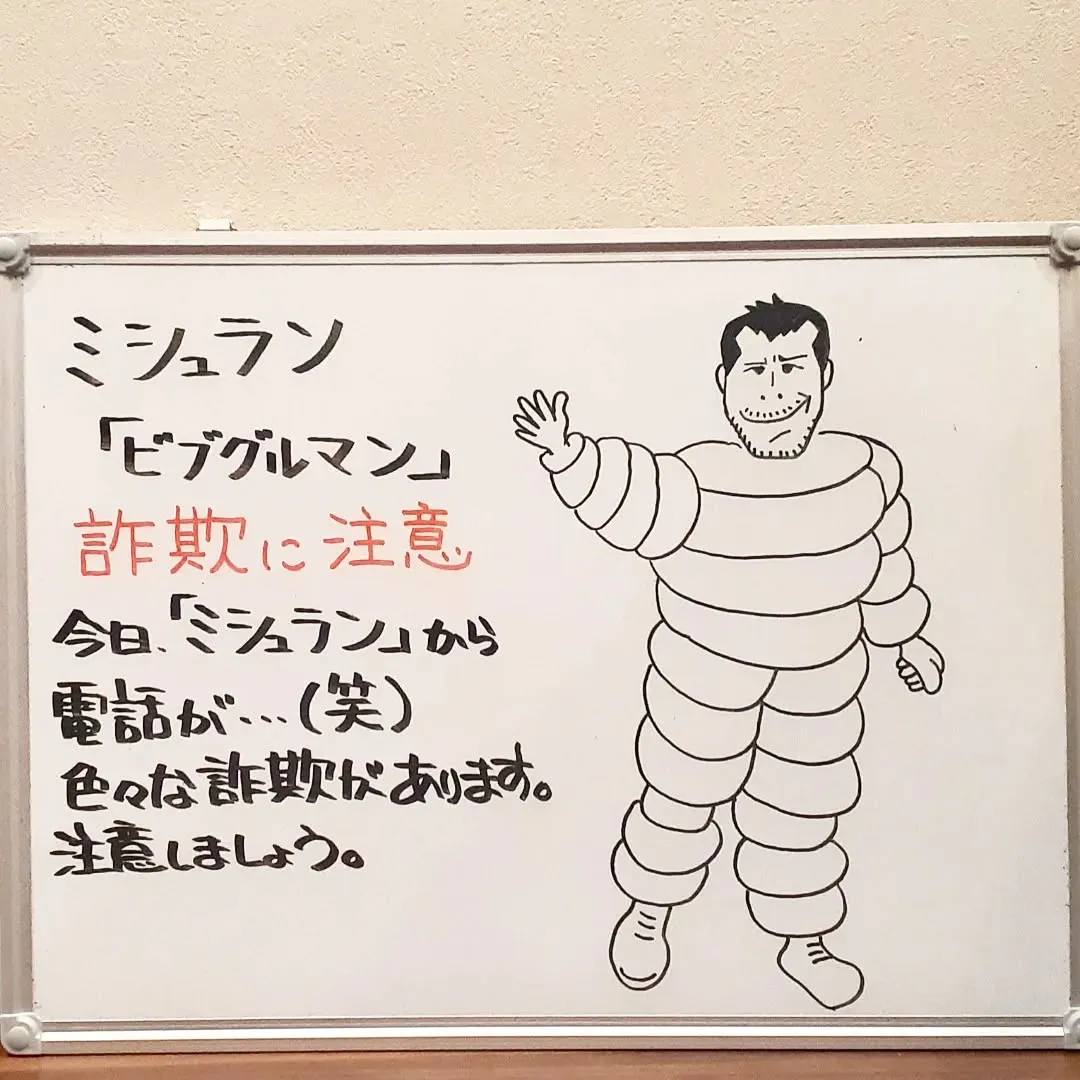 ミシュラン
「ビブグルマン」
詐欺に注意
今日、「ミシュラン」から
電話が…(笑)
色々な詐欺があります。
注意しましょう。